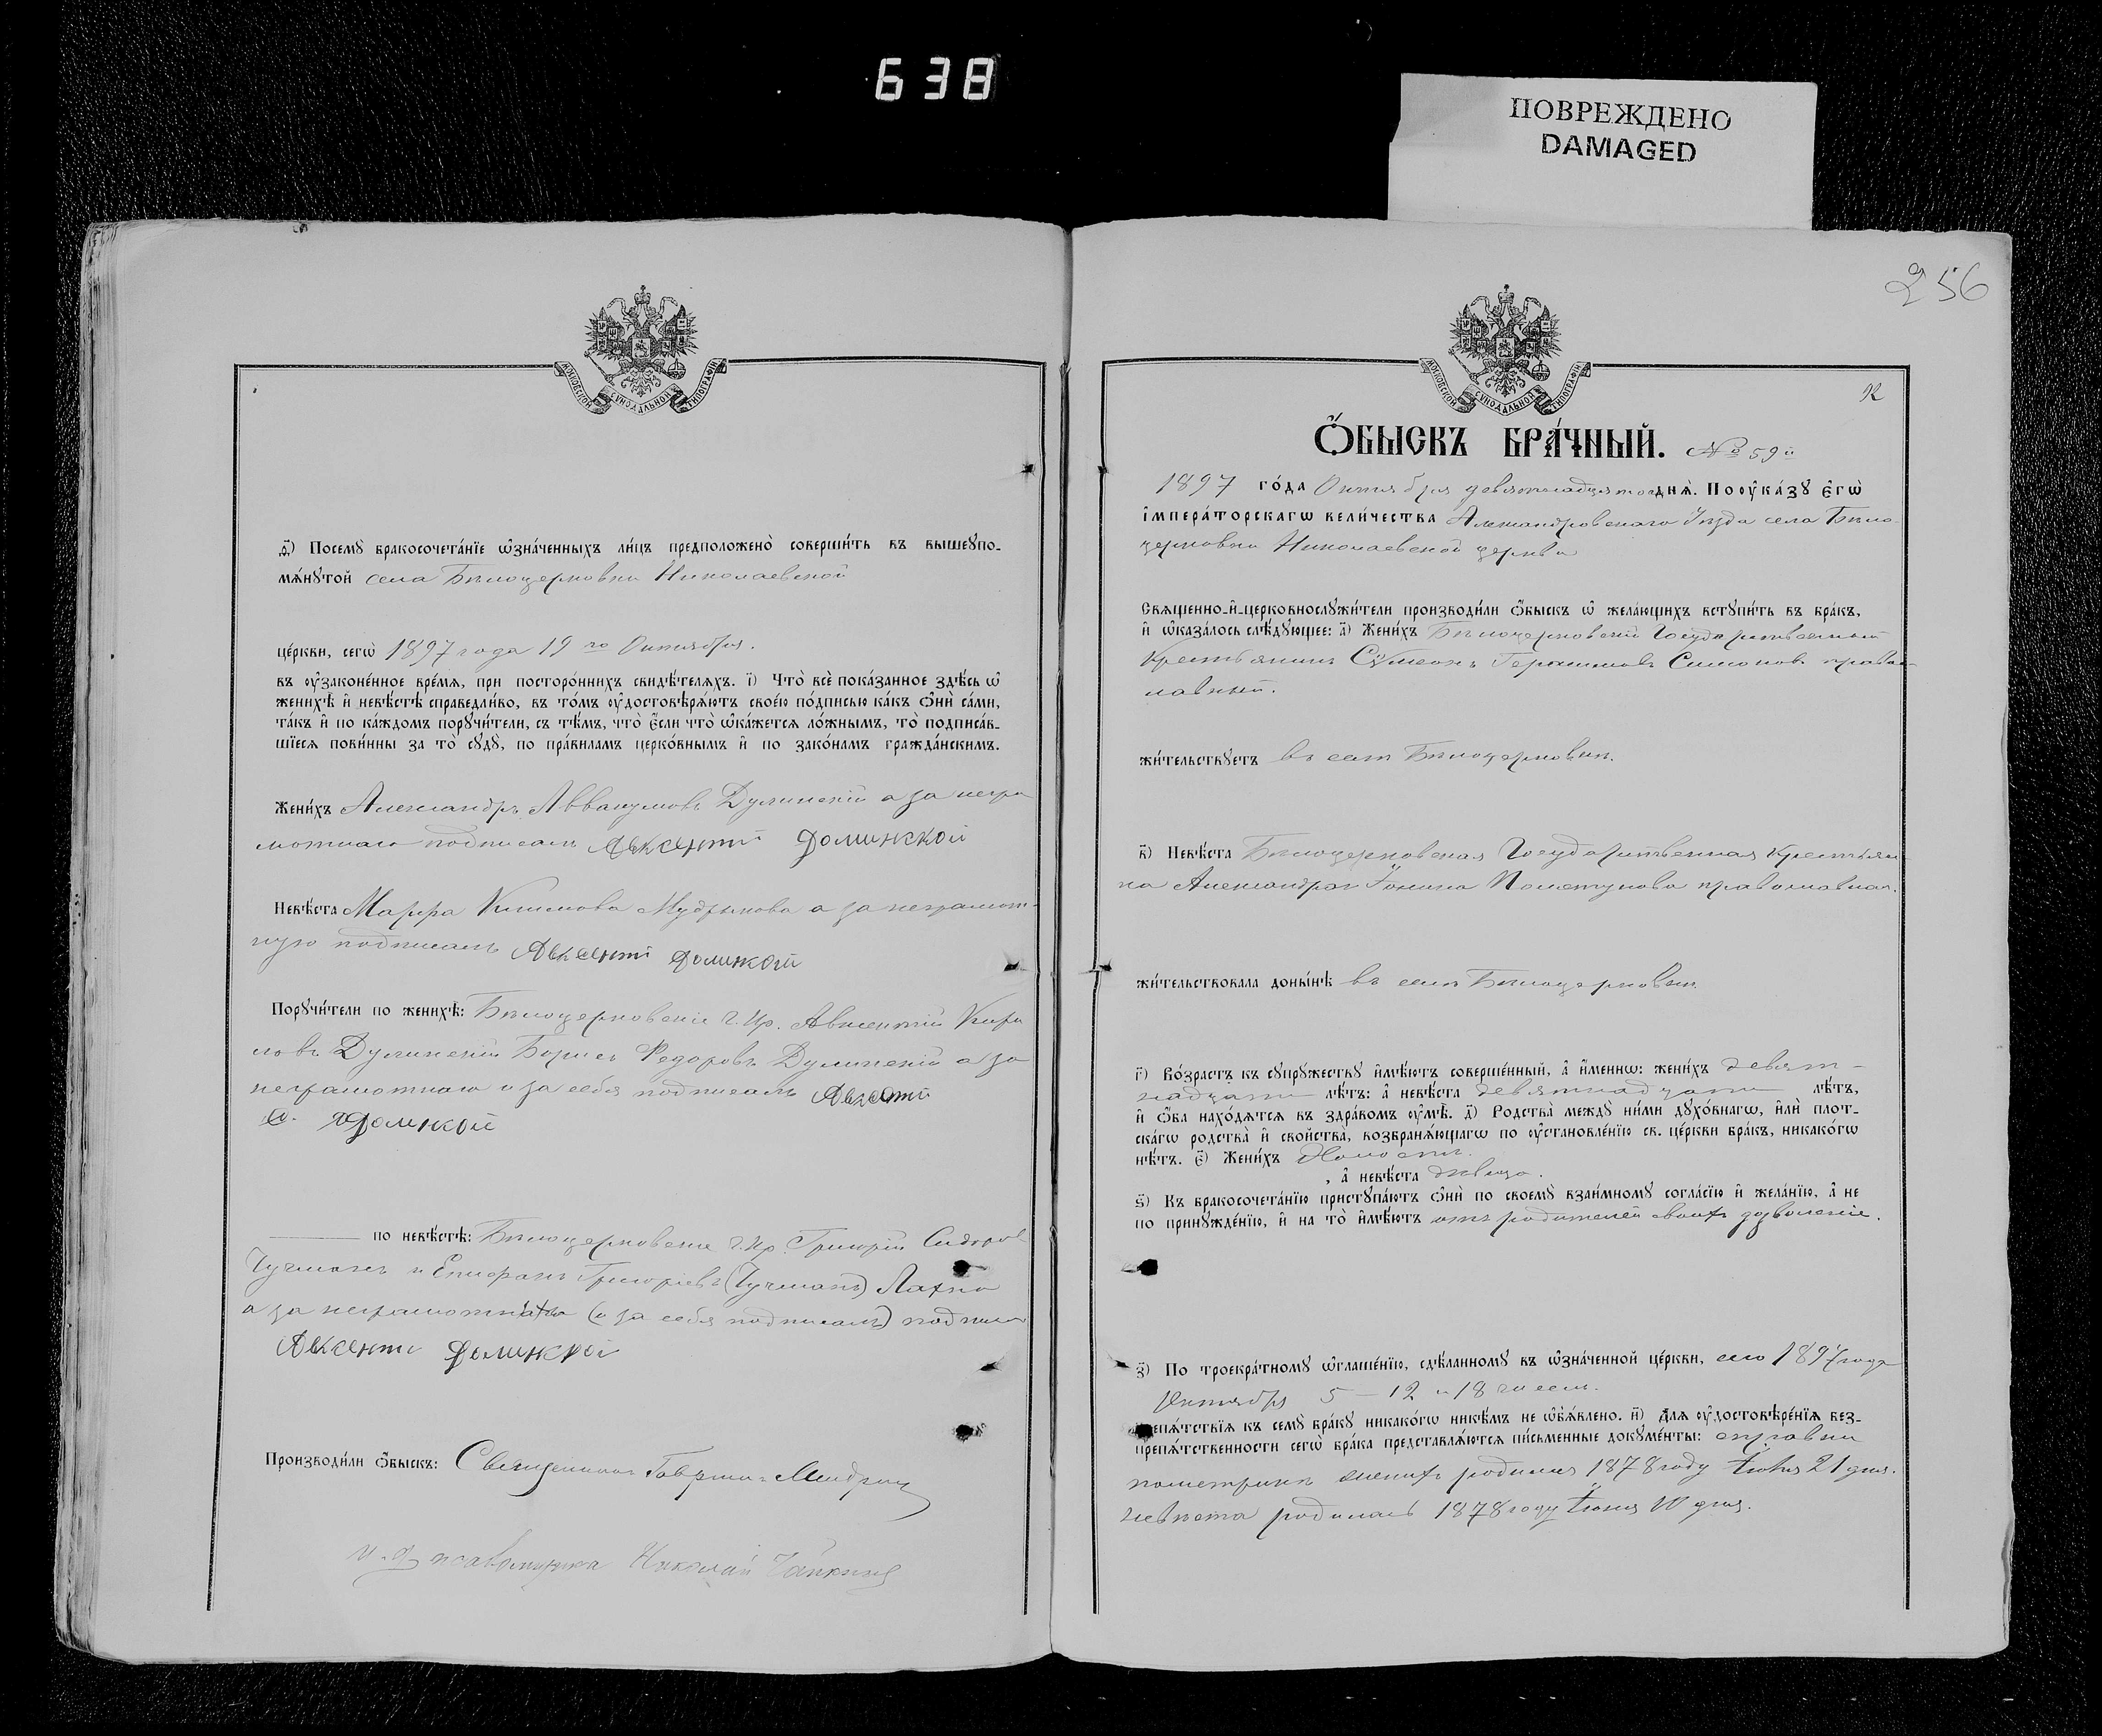 638
ПОВРЕЖДЕНО
DAMAGED
МОСКОВСКОЙ СѴНОДАЛЬНОЙ ТИПОГРАФІИ
ѳ҃) Посемꙋ̀ бракосочета́нїе ѡ҆зна́ченныхъ ли́цъ предположено̀ соверши́ть въ вышеꙋпо-
мѧ́нꙋтой села Бѣлоцерковки Николаевской
це́ркви, сегѡ̀ 1897 года 19 го Октября.
въ ᲂу҆законе́нное вре́мѧ, при посторо́ннихъ свидѣ́телѧхъ. і҃) Что̀ всѐ пока́занное здѣ́сь ѡ҆
женихѣ̀ и҆ невѣ́стѣ справедли́во, въ то́мъ ᲂу҆достовѣрѧ́ютъ свое́ю по́дписью ка́къ ѻ҆нѝ са́ми,
та́къ и҆ по ка́ждомъ порꙋчи́тели, съ тѣ́мъ, что̀ є҆́сли что̀ ѡ҆ка́жетсѧ ло́жнымъ, то̀ подписа́в-
шїесѧ пови́нны за то̀ сꙋдꙋ̀, по пра́виламъ церко́внымъ и҆ по зако́намъ гражда́нскимъ.
Жени́хъ Александръ Аввакумовъ Дулинскій а за негра
мотнаго подписалъ Авксенти Долинской
Невѣ́ста Марѳа Климова Мудрикова а за неграмот-
ную подписалъ Авксенти Долинкой
Порꙋчи́тели по женихѣ̀: Бѣлоцерковскіе г. кр. Авксентій Кири
ловъ Дулинскій Борисъ Федоровъ Дулинскій а за
неграмотнаго и за себя подписалъ Авксенти
Долинкой
по невѣ́стѣ: Бѣлоцерковскіе г. кр. Григорій Сидоров
Чучманъ и Епифанъ Григоріевъ (Чучманъ) Лахно
а за неграмотныхъ (и за себя подписалъ) подписал
Авксенти Долинской
Производи́ли ѻ҆́быскъ: Священникъ Гавріилъ
и. д. псаломщика Николай
256
МОСКОВСКОЙ СѴНОДАЛЬНОЙ ТИПОГРАФІИ
Ѻ҆́БЫСКЪ БРА́ЧНЫЙ. № 59 й
1897 го́да Октября девятнадцатаго днѧ̀. По ᲂу҆ка́зꙋ є҆гѡ̀
і҆мпера́торскагѡ вели́чества Александровскаго Уѣзда села Бѣло
церковки Николаевской церкви
Свѧщенно-и҆-церковнослꙋжи́тели производи́ли ѻ҆́быскъ ѡ҆ жела́ющихъ встꙋпи́ть въ бра́къ,
и҆ ѡ҆каза́лось слѣ́дꙋющее: а҃) Жени́хъ Бѣлоцерковскій Государственный
Крестьянинъ Сѵмеонъ Герасимовъ Симоновъ правос
лавный.
жи́тельствꙋетъ въ селѣ Бѣлоцерковкѣ.
в҃) Невѣ́ста Бѣлоцерковская Государственная крестьян
ка Александра Ѳомина православная.
жи́тельствовала доны́нѣ въ селѣ Бѣлоцерковкѣ.
г҃) Во́зрастъ къ сꙋпрꙋ́жествꙋ и҆мѣ́ютъ соверше́нный, а҆ и҆́меннѡ: жени́хъ девят-
надцати лѣ́тъ: а҆ невѣ́ста девятнадцати лѣ́тъ,
и҆ ѻ҆́ба нахо́дѧтсѧ въ здра́вомъ ᲂу҆мѣ̀. д҃) Родства̀ междꙋ̀ ни́ми дꙋхо́внагѡ, и҆лѝ плот-
ска́гѡ родства̀ и҆ свойства̀, возбранѧ́ющагѡ по ᲂу҆становле́нїю св. це́ркви бра́къ, никако́гѡ
нѣ́тъ. є҃) Жени́хъ Холостъ.
, а҆ невѣ́ста дѣвица.
ѕ҃) Къ бракосочета́нїю пристꙋпа́ютъ ѻ҆нѝ по своемꙋ̀ взаи́мномꙋ согла́сїю и҆ жела́нїю, а҆ не
по принꙋжде́нїю, и҆ на то̀ и҆мѣ́ютъ отъ родителей своихъ дозволеніе.
з҃) По троекра́тномꙋ ѡ҆глаше́нїю, сдѣ́ланномꙋ въ ѡ҆зна́ченной це́ркви, сего 1897 года
Октября 5 - 12 и 18 чиселъ.
препѧ́тствїѧ къ семꙋ̀ бра́кꙋ никако́гѡ никѣ́мъ не ѡ҆б̾ѧ́влено. и҃) Длѧ ᲂу҆достовѣре́нїѧ без-
препѧ́тственности сегѡ̀ бра́ка представлѧ́ютсѧ пи́сьменные докꙋме́нты: справки
по метрикѣ женихъ родился 1878 году Іюня 21 дня.
невѣста родилась 1878 году Іюня 10 дня.